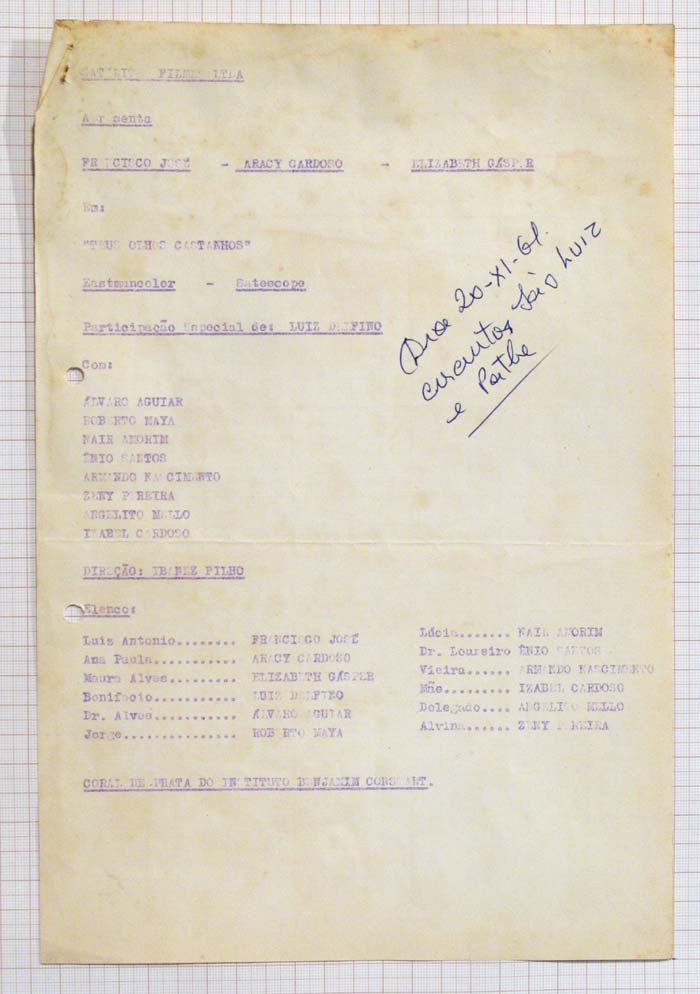 SATÉLITE FILMES LTDA
Apresenta
FRANCISCO JOSÉ - ARACY CARDOSO - ELIZABETH GÁSPER
Em:
"TEUS OLHOS CASTANHOS"
Eastmancolor - Satescope
Participação Especial de: LUIZ DELFINO
Com:
ÁLVARO AGUIAR
ROBERTO MAYA
NAIR AMORIM
ÊNIO SANTOS
ARMANDO NASCIMENTO
ZENY PEREIRA
ANGELITO MELLO
IZABEL CARDOSO
DIREÇÃO: IBANEZ FILHO
Elenco:
Luiz Antonio........ FRANCISCO JOSÉ
Ana Paula........... ARACY CARDOSO
Maura Alves......... ELIZABETH GÁSPER
Bonifacio........... LUIZ DELFINO
Dr. Alves........... ÁLVARO AGUIAR
Jorge............... ROBERTO MAYA
Lúcia....... NAIR AMORIM
Dr. Loureiro ÊNIO SANTOS
Vieira...... ARMANDO NASCIMENTO
Mãe......... IZABEL CARDOSO
Delegado.... ANGELITO MELLO
Alvina...... ZENY PEREIRA
CORAL DE PRATA DO INSTITUTO BENJAMIN CONSTANT.
20-XI-61.
circuitos São LUIZ
e Pathe